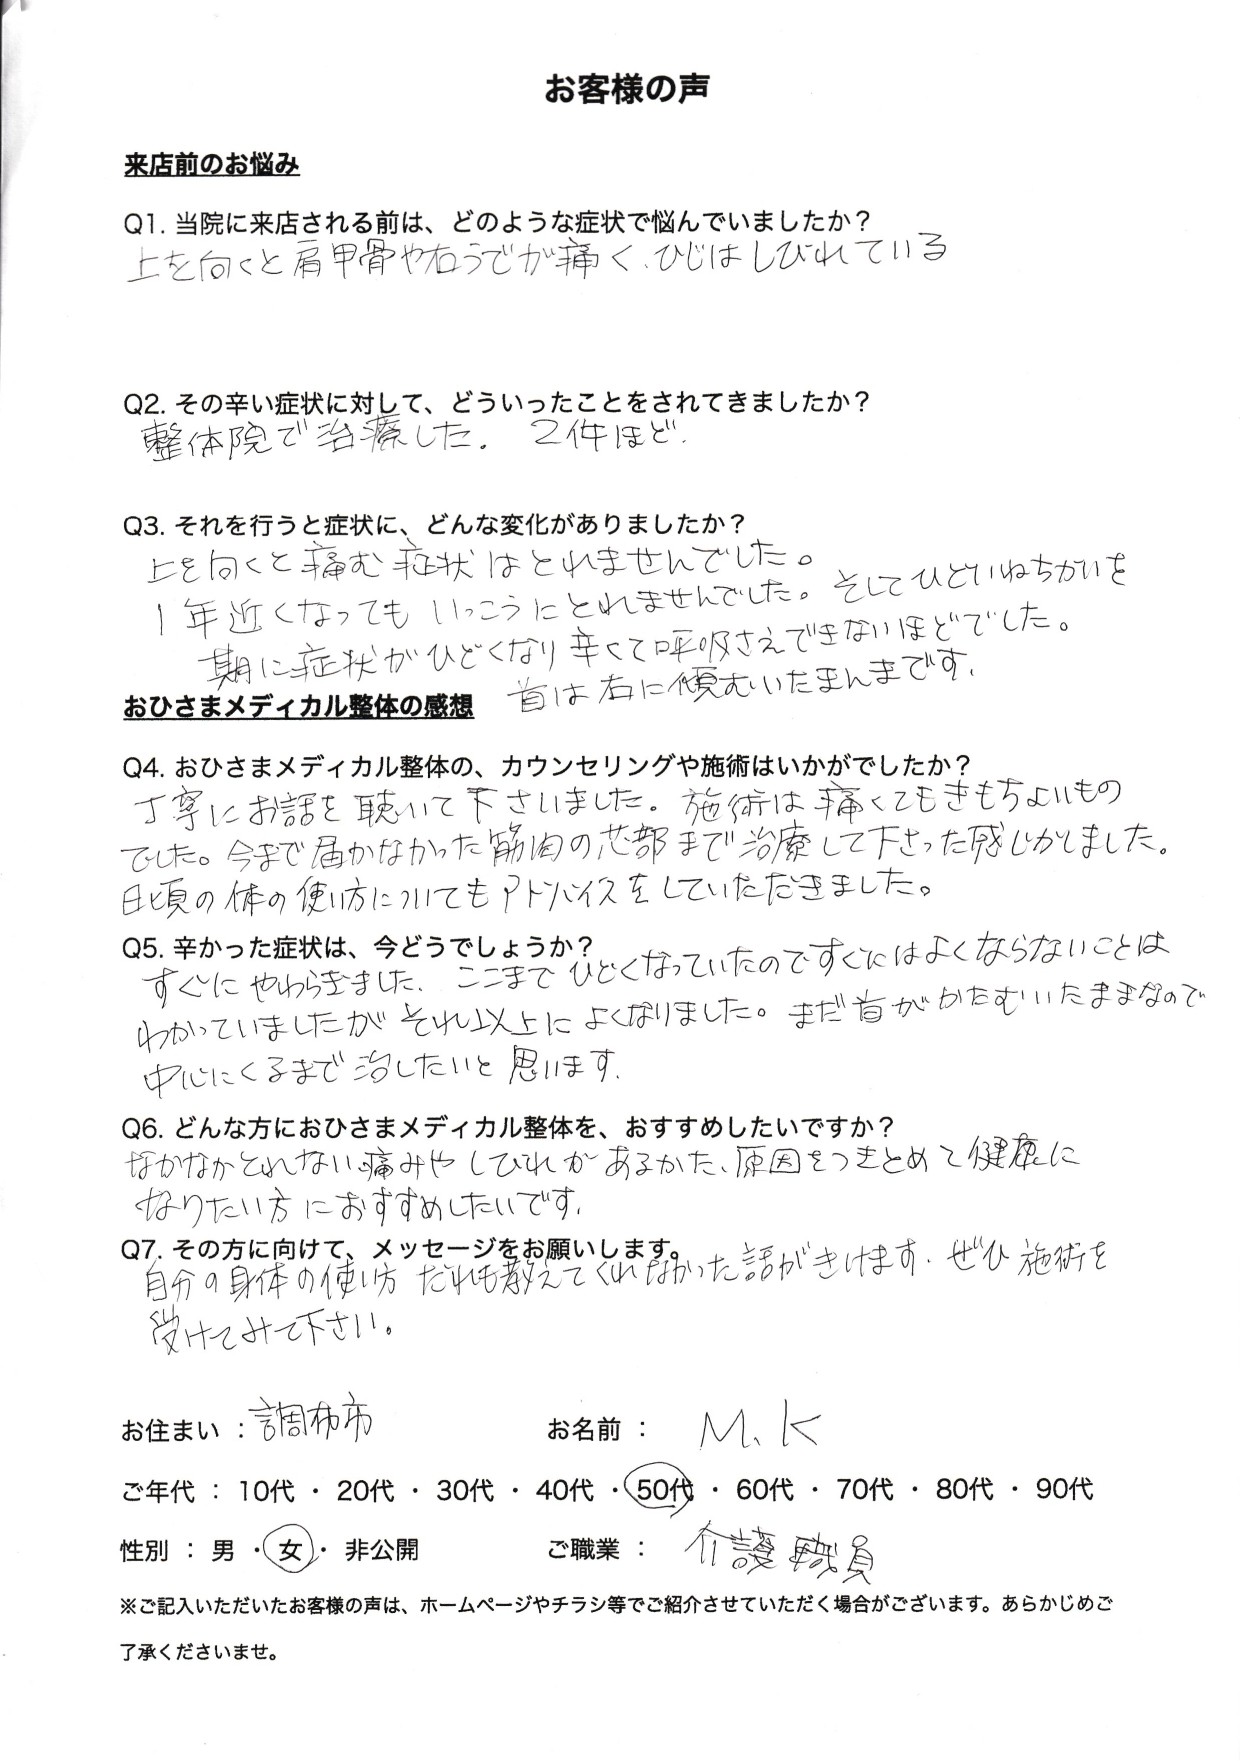 お客様の声
来店前のお悩み
Q1. 当院に来店される前は、どのような症状で悩んでいましたか？
上を向くと肩甲骨や右うでが痛く、ひじはしびれている
Q2. その辛い症状に対して、どういったことをされてきましたか？
整体院で治療した. 2件ほど.
Q3. それを行うと症状に、どんな変化がありましたか？
上を向くと痛む症状はとれませんでした。
1年近くなってもいっこうにとれませんでした。そしてひどいねちがいを
期に症状がひどくなり辛くて呼吸さえできないほどでした。
首は右に傾むいたまんまです.
おひさまメディカル整体の感想
Q4. おひさまメディカル整体の、カウンセリングや施術はいかがでしたか？
丁寧にお話を聴いて下さいました。施術は痛くてもきもちよいもの
でした。今まで届かなかった筋肉の芯部まで治療して下さった感じがしました。
日頃の体の使い方についてもアドバイスをしていただきました。
Q5. 辛かった症状は、今どうでしょうか？
すぐにやわらぎました. ここまでひどくなっていたのですぐにはよくならないことは
わかっていましたがそれ以上によくなりました。まだ首がかたむいたままなので
中心にくるまで治したいと思います.
Q6. どんな方におひさまメディカル整体を、おすすめしたいですか？
なかなかとれない痛みやしびれがあるかた、原因をつきとめて健康に
なりたい方におすすめしたいです.
Q7. その方に向けて、メッセージをお願いします。
自分の身体の使い方だれも教えてくれなかった話がきけます. ぜひ施術を
受けてみて下さい。
お住まい : 調布市 お名前 : M.K
ご年代 : 10代 ・ 20代 ・ 30代 ・ 40代 ・ 50代 ・ 60代 ・ 70代 ・ 80代 ・ 90代
性別 : 男 ・ 女 ・ 非公開 ご職業 : 介護職員
※ご記入いただいたお客様の声は、ホームページやチラシ等でご紹介させていただく場合がございます。あらかじめご
了承くださいませ。